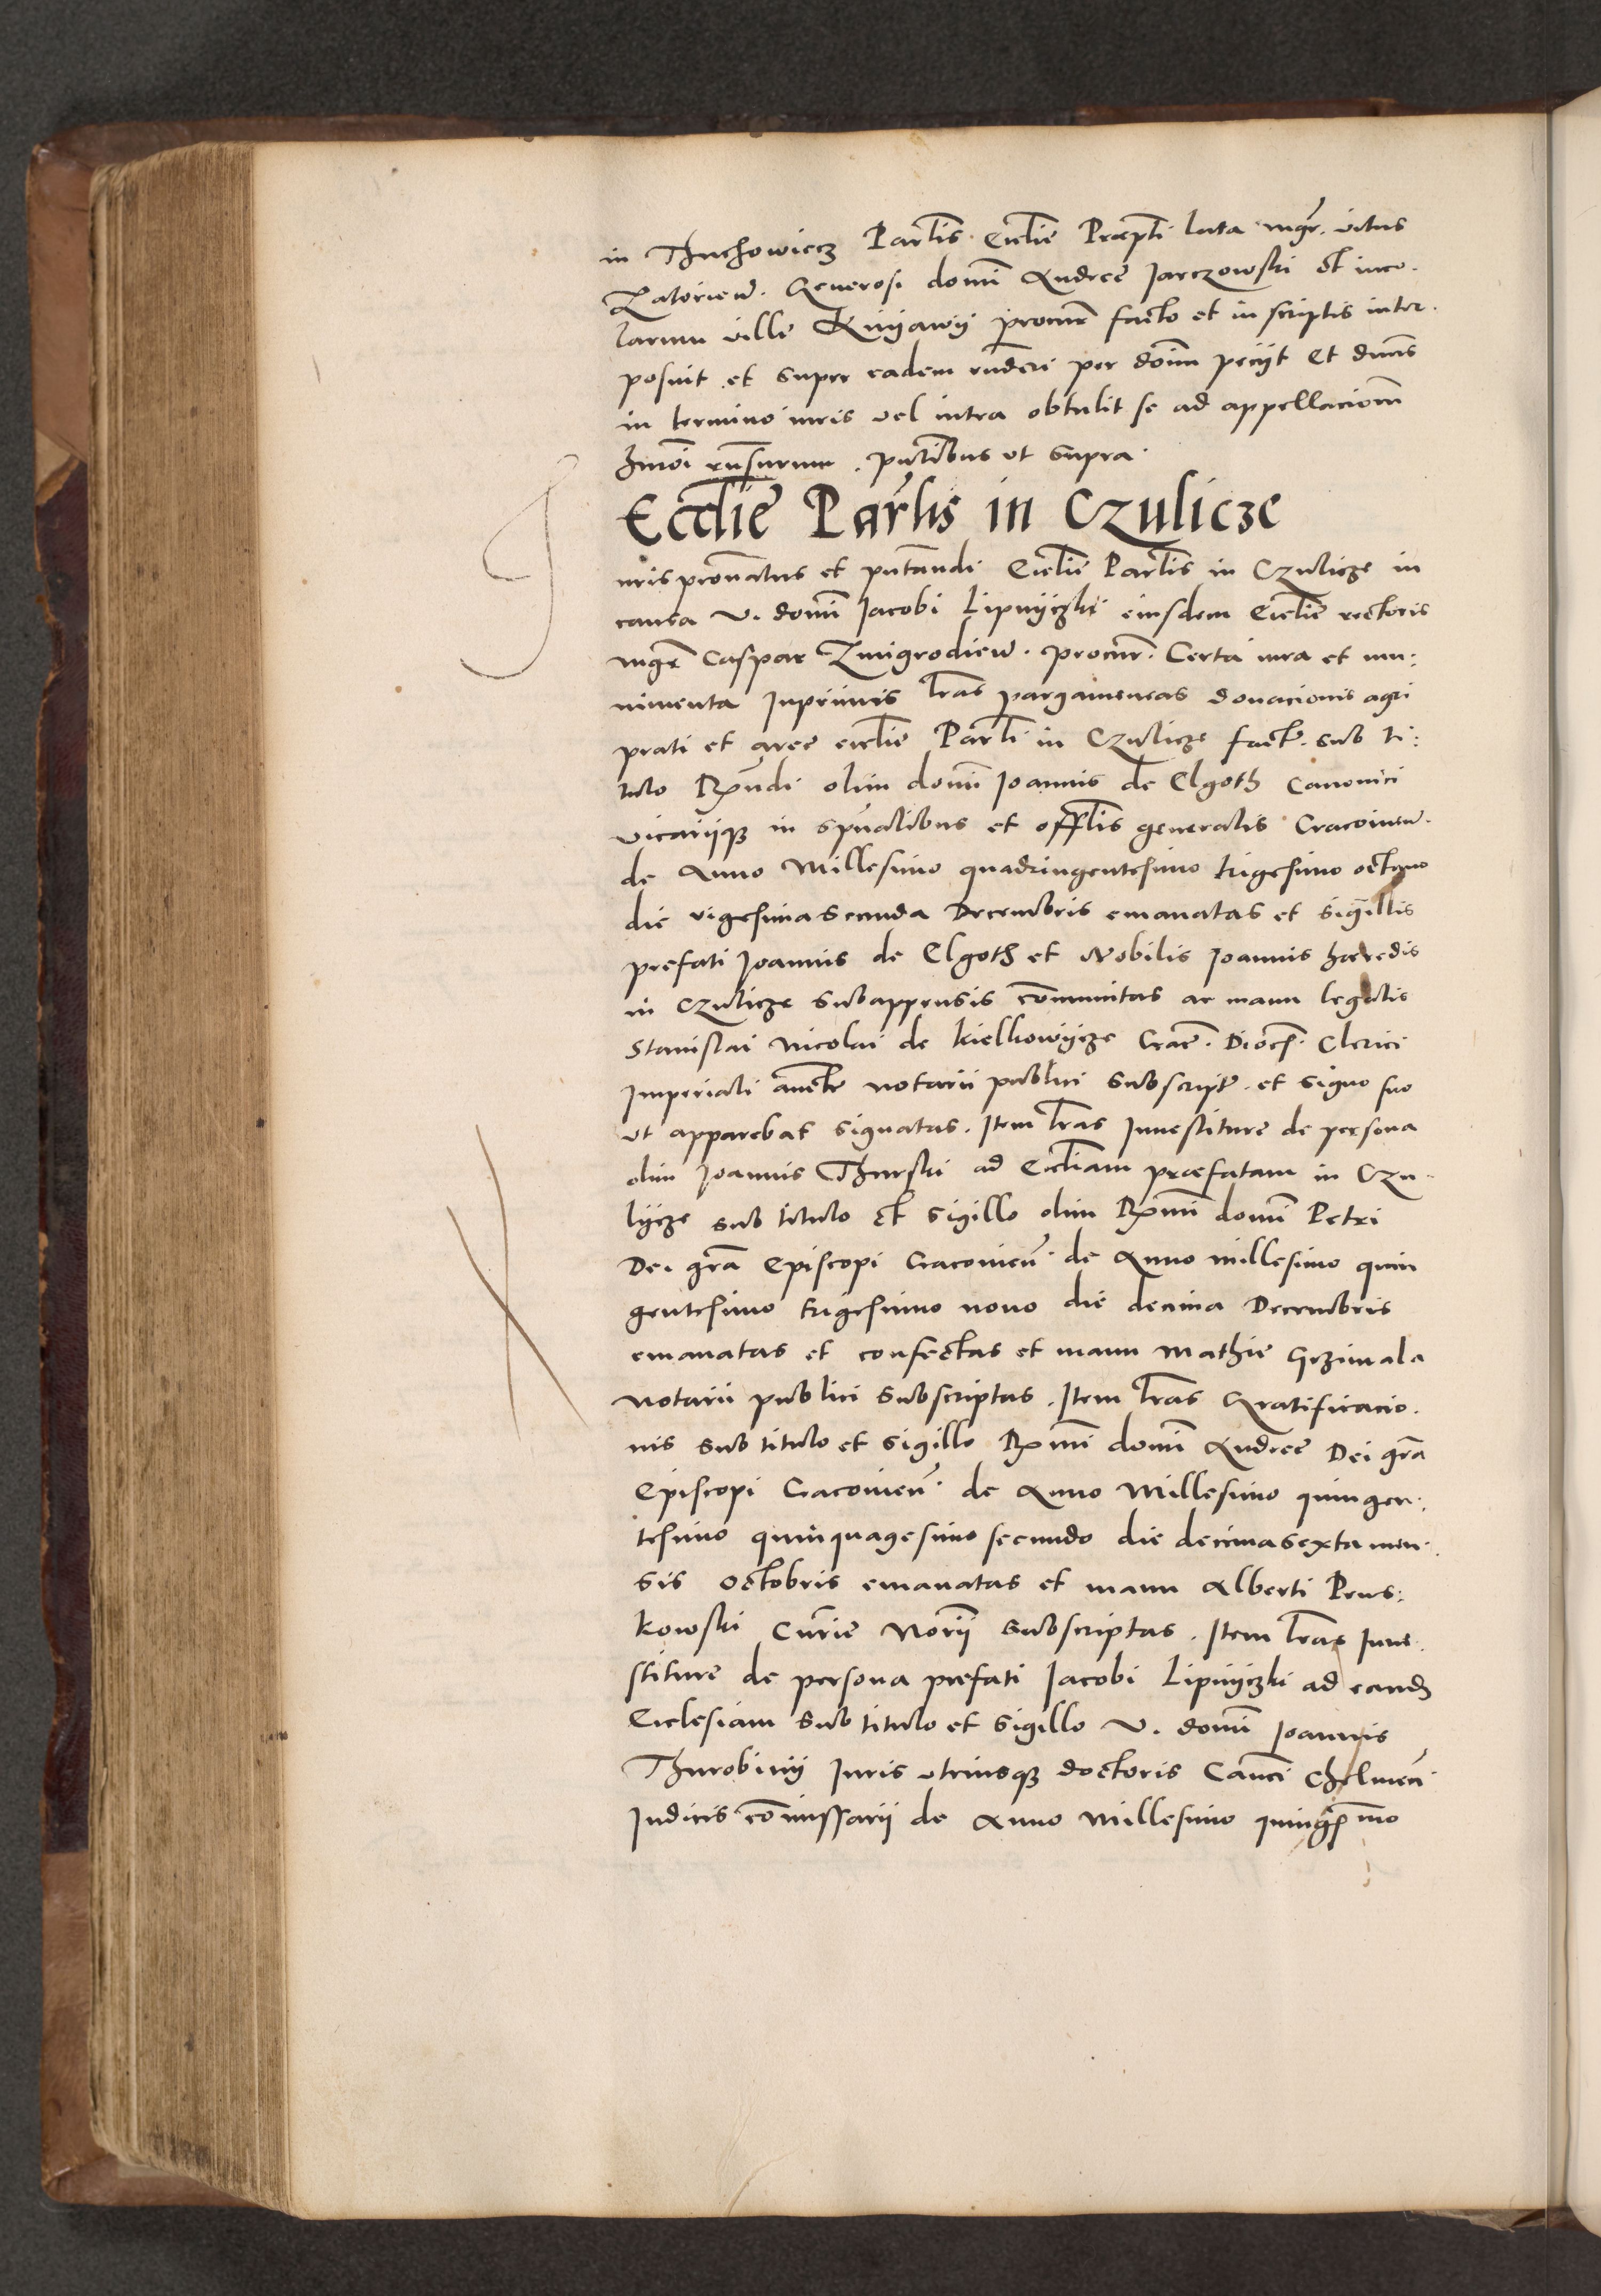 in Thuchowiecz Parlis Ecclie Præpti lata mgr. vitus
Zatorien. Generosi domi Andree Jarczowski et inco-
larum ville Kuyawy procur facto et in scriptis inter-
posuit et super eadem per domi peciit et
in termino iuris vel intra obtulit se ad appellaciom
. pntibus ut supra.
Ecclie Parlis in Czulicze
uris pronatus et pntandi Ecclie Parlis in Czulicze in
causa V. domi Jacobi Lipnyczki eiusdem Ecclie rectoris
mgr Caspar Zmigrodien. procur. Certa iura et mu:
nimenta Inprimis lras pargameneas donacionis agri
prati et aree ecclie Parli in Czulicze fact. sub ti:
tulo Rndi olim domi Joannis de Elgoth Canonici
vicariique in spualibus et offlis generalis Cracouien.
de Anno Millesimo quadringentesimo trigesimo octavo
die vigesima secunda Decembris emanatas et sigillis
prefati Joannis de Elgoth et Nobilis Joannis haeredis
in Czulicze subappensis communitas ac manu legalis
Stanislai Nicolai de Kielkowycze Crac. Dioc. Clerici
Imperiali aucte notarii publici subscript. et signo suo
ut apparebat signatas. Item lras Inuestiture de persona
olim Joannis Thurski ad Eccliam præfatam in Czu-
lycze sub titulo et sigillo olim Rmi domi Petri
Dei gra Episcopi Cracouien. de Anno millesimo quin
gentesimo trigesimo nono die decima Decembris
emanatas et confectas et manu Mathie Grzimala
Notarii publici subscriptas. Item lras Gratificacio-
nis sub titulo et sigillo Rmi domi Andree Dei gra
Episcopi Cracouien. de Anno Millesimo quingen:
tesimo quinquagesimo secundo die decima sexta men-
sis Octobris emanatas et manu Alberti Prus:
kowski Curie Norii subscriptas. Item lras Inue-
stiture de persona prefati Jacobi Lipnyczki ad eand
Ecclesiam sub titulo et sigillo V. domi Joannis
Thurobinii Iuris utriusque doctoris Canci Chelmen
Iudicis comissarii de Anno Millesimo quingmo